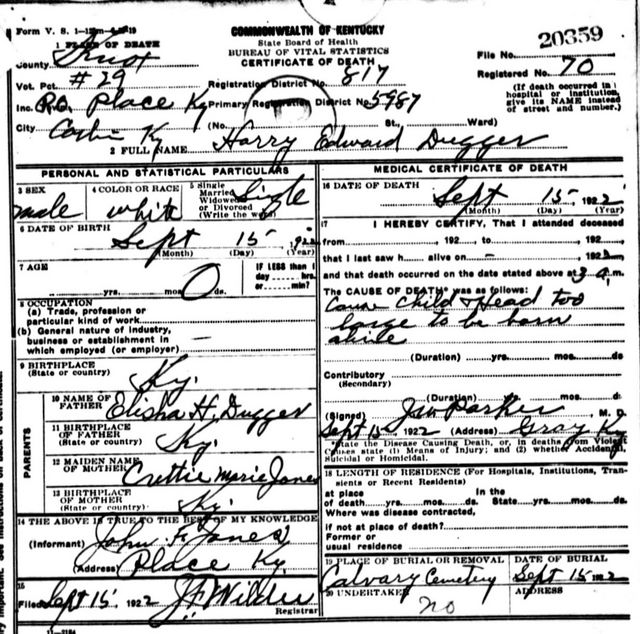 Form V. S. 1-
COMMONWEALTH OF KENTUCKY
State Board of Health
BUREAU OF VITAL STATISTICS
CERTIFICATE OF DEATH
File No. 20359
Registered No. 70
(If death occurred in
hospital or institution,
give its NAME instead
of street and number.)
1 PLACE OF DEATH
County Knox
Vot. Pct. #29
Registration District No. 817
Inc. P.O. Place Ky Primary Registration District No. 5987
City Corbin Ky (No. St., Ward)
2 FULL NAME Harry Edward Dugger
PERSONAL AND STATISTICAL PARTICULARS
3 SEX
male
4 COLOR OR RACE
white
5 Single
Married
Widowed
or Divorced
(Write the word)
Sigle
6 DATE OF BIRTH
Sept 15, 1922
(Month) (Day) (Year)
7 AGE
yrs. mos. 0 ds.
IF LESS than 1
day hrs.
or min?
8 OCCUPATION
(a) Trade, profession or
particular kind of work
(b) General nature of industry,
business or establishment in
which employed (or employer) —
9 BIRTHPLACE
(State or country) Ky.
PARENTS
10 NAME OF
FATHER Elisha H. Dugger
11 BIRTHPLACE
OF FATHER
(State or country) Ky.
12 MAIDEN NAME
OF MOTHER Crettie Marie Jones
13 BIRTHPLACE
OF MOTHER
(State or country) Ky.
14 THE ABOVE IS TRUE TO THE BEST OF MY KNOWLEDGE
(Informant) John F. Jones
(Address) Place Ky.
15
Filed Sept 15, 1922 J.F. Wilder
Registrar
MEDICAL CERTIFICATE OF DEATH
16 DATE OF DEATH
Sept 15 1922
(Month) (Day) (Year)
17 I HEREBY CERTIFY, That I attended deceased
from , 192 to , 192
that I last saw h alive on — 192
and that death occurred on the date stated above at 3 a.m.
The CAUSE OF DEATH* was as follows:
Child Head too
large to be born
alive
(Duration) yrs. mos. ds.
Contributory
(Secondary)
(Duration) yrs. mos. d
(Signed) Parker M. D.
Sept 15 1922 (Address) Gray Ky
*State the Disease Causing Death, or, in deaths from Violent
Causes state (1) Means of Injury; and (2) whether Accidental,
Suicidal or Homicidal.
18 LENGTH OF RESIDENCE (For Hospitals, Institutions, Tran-
sients or Recent Residents)
at place In the
of death yrs. mos. ds. State yrs. mos. ds.
Where was disease contracted,
if not at place of death?
Former or
usual residence
19 PLACE OF BURIAL OR REMOVAL
Calvary Cemetery
DATE OF BURIAL
Sept 15 1922
20 UNDERTAKER
no
ADDRESS
11-3184